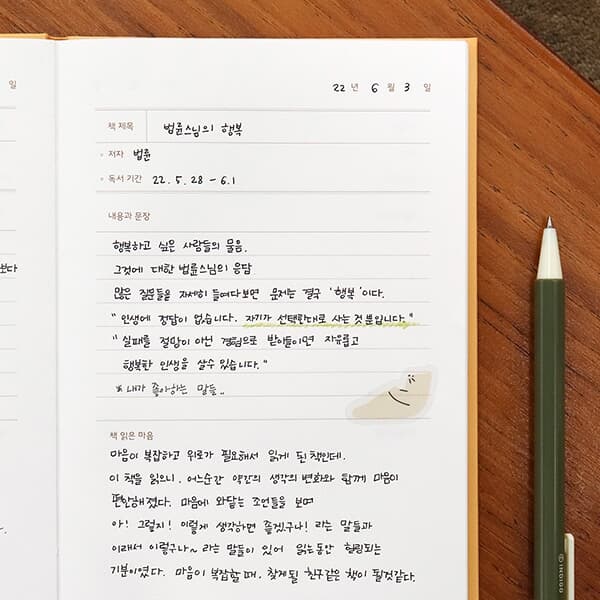 일
22 년 6 월 3 일
책 제목 법륜스님의 행복
저자 법륜
독서 기간 22. 5. 28 - 6.1
내용과 문장
행복하고 싶은 사람들의 물음.
그것에 대한 법륜스님의 응답
보다
많은 질문들을 자세히 들여다보면 문제는 결국 '행복'이다.
"인생에 정답이 없습니다. 자기가 선택한대로 사는 것 뿐입니다."
"실패를 절망이 아닌 경험으로 받아들이면 자유롭고
행복한 인생을 살수 있습니다."
* 내가 좋아하는 말들..
책 읽은 마음
마음이 복잡하고 위로가 필요해서 읽게 된 책인데.
이 책을 읽으니, 어느순간 약간의 생각의 변화와 함께 마음이
편안해졌다. 마음에 와닿는 조언들을 보며
아! 그렇지! 이렇게 생각하면 좋겠구나! 라는 말들과
이래서 이렇구나~ 라는 말들이 있어 읽는동안 힐링되는
기분이었다. 마음이 복잡할 때, 찾게될 친구같은 책이 될것같다.
INDIGO